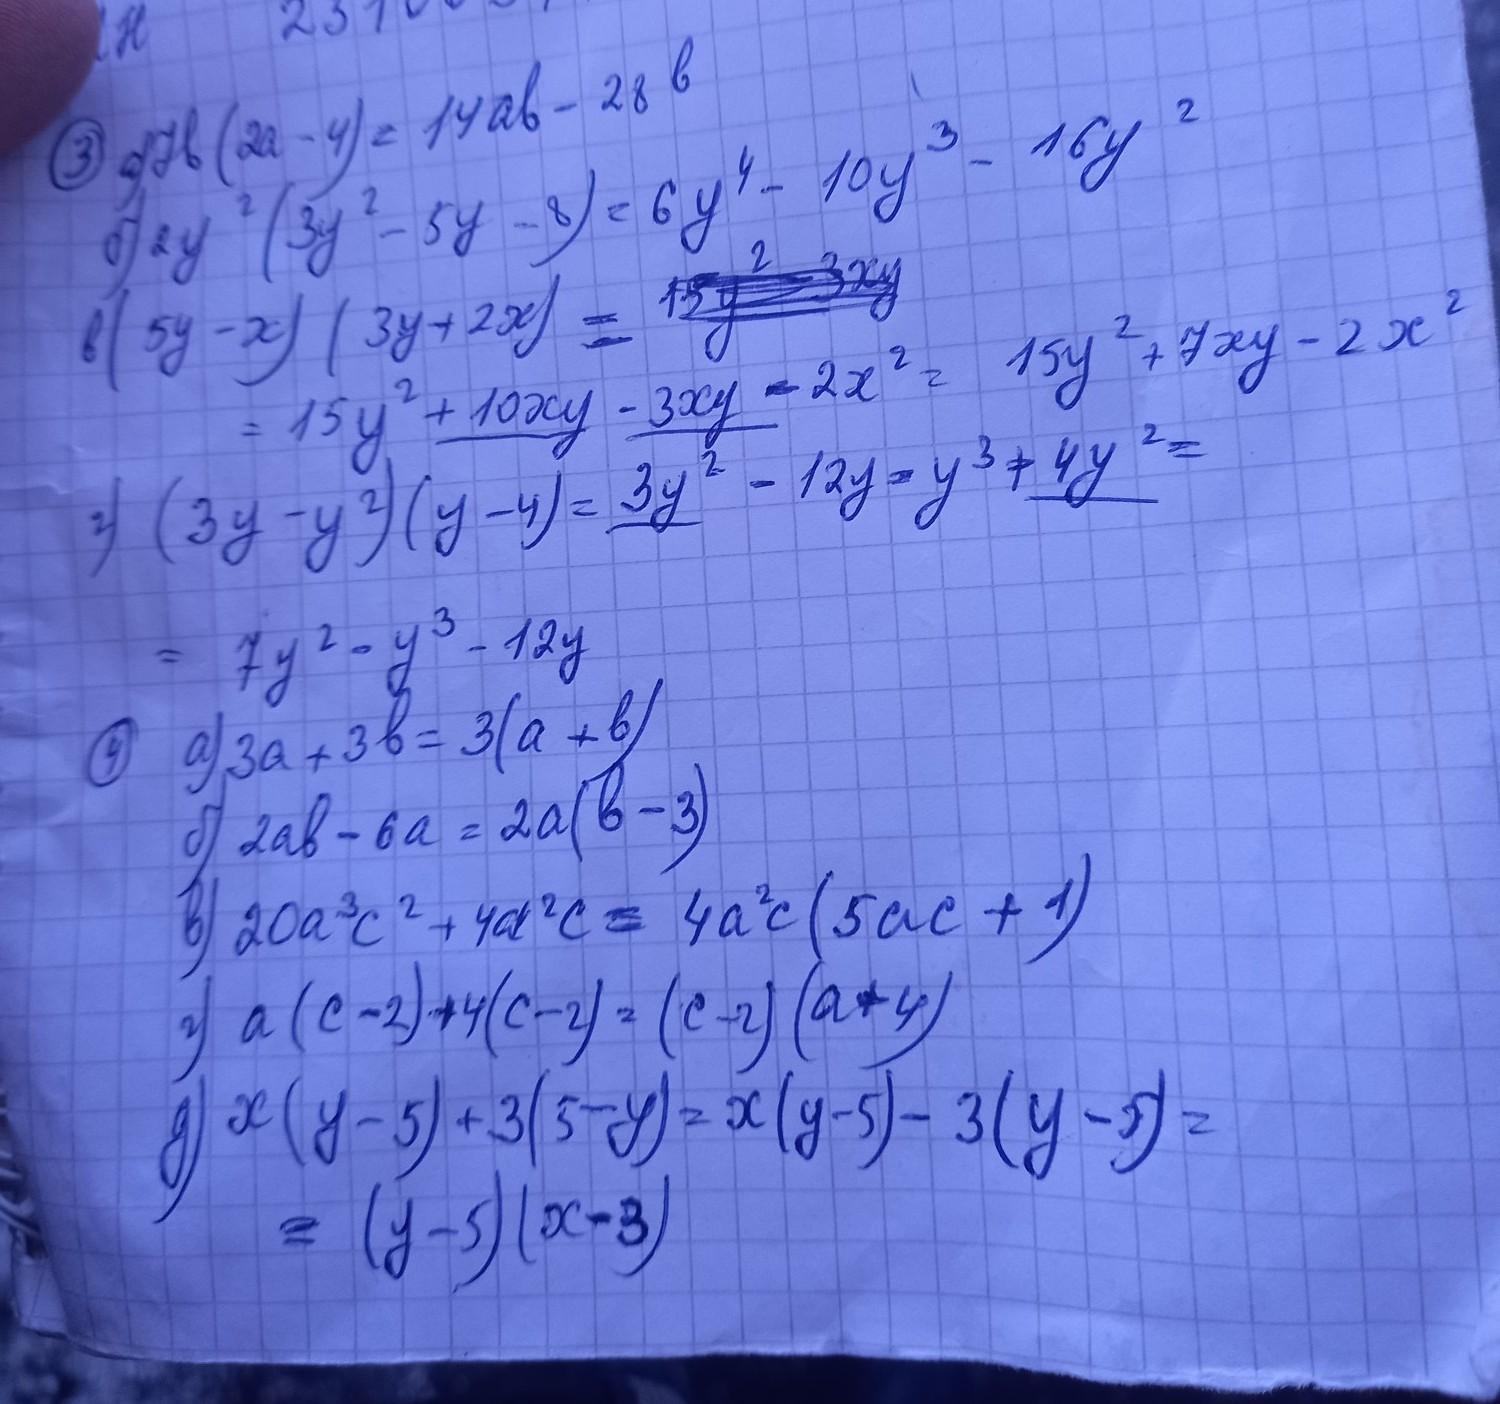 ③ а) 7b(2a - 4) = 14ab - 28b
б) 2y²(3y² - 5y - 8) = 6y⁴ - 10y³ - 16y²
в) (5y - x)(3y + 2x) =
= 15y² + 10xy - 3xy - 2x² = 15y² + 7xy - 2x²
г) (3y - y²)(y - 4) = 3y² - 12y - y³ + 4y² =
= 7y² - y³ - 12y
④ а) 3a + 3b = 3(a + b)
б) 2ab - 6a = 2a(b - 3)
в) 20a³c² + 4a²c = 4a²c(5ac + 1)
г) a(c - 2) + 4(c - 2) = (c - 2)(a + 4)
д) x(y - 5) + 3(5 - y) = x(y - 5) - 3(y - 5) =
= (y - 5)(x - 3)